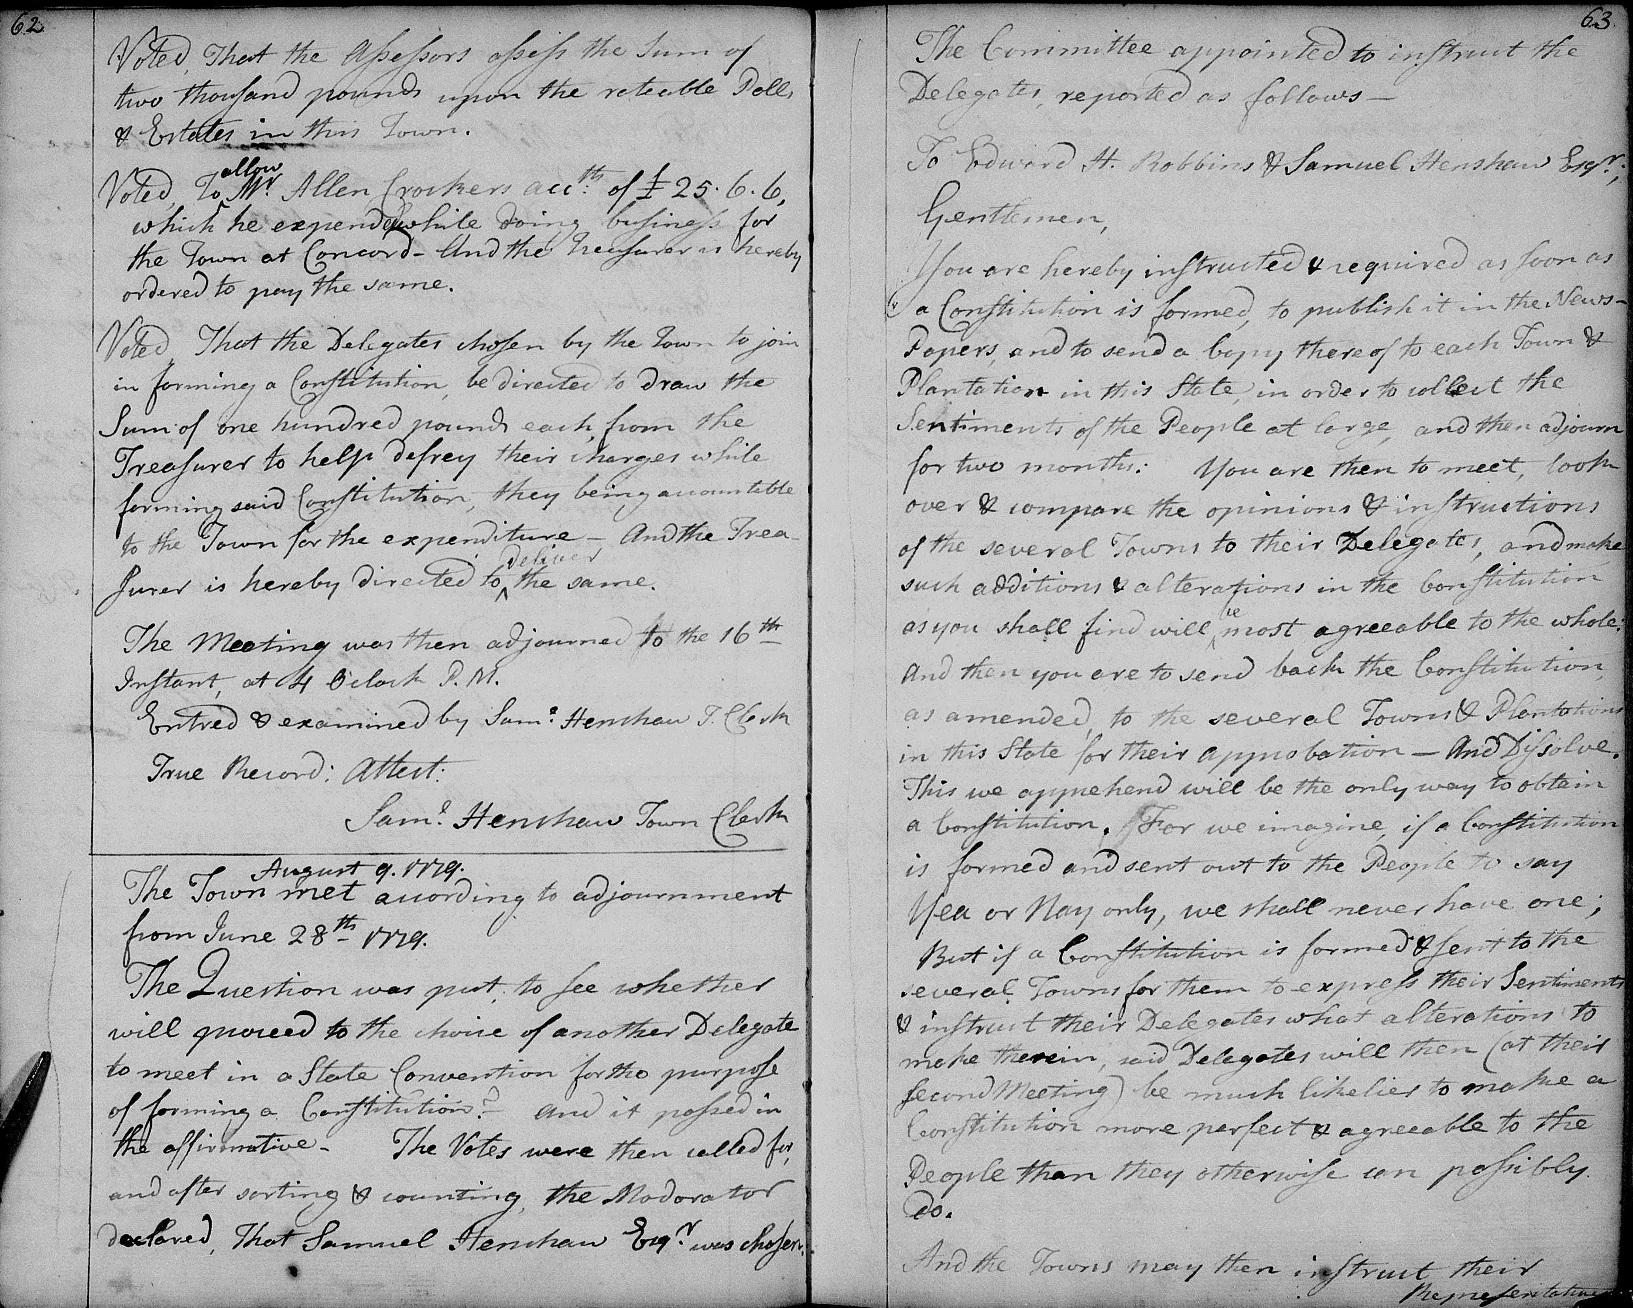 62
Voted, That the Assessors assess the Sum of
two thousand pounds upon the rateable Polls
& Estates in this Town.
allow
Voted, To Mr. Allen Crockers accth. of £25.6.6,
which he expended while doing business for
the Town at Concord - And the Treasurer is hereby
ordered to pay the same.
Voted, That the Delegates chosen by the Town to join
in forming a Constitution, be directed to draw the
Sum of one hundred pounds each, from the
Treasurer to help defrey their charges while
forming said Constitution, they being accountable
to the Town for the expenditure - And the Trea-
deliver
surer is hereby directed to ^ the same.
The Meeting was then adjourned to the 16th
Instant, at 4 O'clock P.M.
Entred & examined by Saml. Henshaw T. Clerk
True Record: Attest:
Saml. Henshaw Town Clerk
August 9. 1779.
The Town met according to adjournment
from June 28th 1779.
The Question was put, to see whether
will proceed to the choice of another Delegate
to meet in a State Convention for the purpose
of forming a Constitution? - and it passed in
the affirmative - The Votes were then called for,
and after sorting & counting, the Moderator
declared, That Samuel Henshaw Esqr. was chosen.
63
The Committee appointed to instruct the
Delegates, reported as follows -
To Edward H. Robbins & Samuel Henshaw Esqr.;
Gentlemen,
You are hereby instructed & required as soon as
a Constitution is formed, to publish it in the News-
Papers, and to send a Copy thereof to each Town &
Plantation in this State, in order to collect the
Sentiments of the People at large, and then adjourn
for two months: You are then to meet, look
over & compare the opinions & instructions
of the several Towns to their Delegates, and make
such additions & alterations in the Constitution
be
as you shall find will ^ most agreeable to the whole:
and then you are to send back the Constitution,
as amended, to the several Towns & Plantations
in this State for their approbation - And Dissolve.
This we apprehend will be the only way to obtain
a Constitution. For we imagine, if a Constitution
is formed and sent out to the People to say
Yea or Nay only, we shall never have one;
But if a Constitution is formed & sent to the
several Towns for them to express their Sentiments
& instruct their Delegates what alterations to
make therein, said Delegates will then (at their
second Meeting) be much likelier to make a
Constitution more perfect & agreeable to the
People than they otherwise can possibly
do.
And the Towns may then instruct their
Representatives